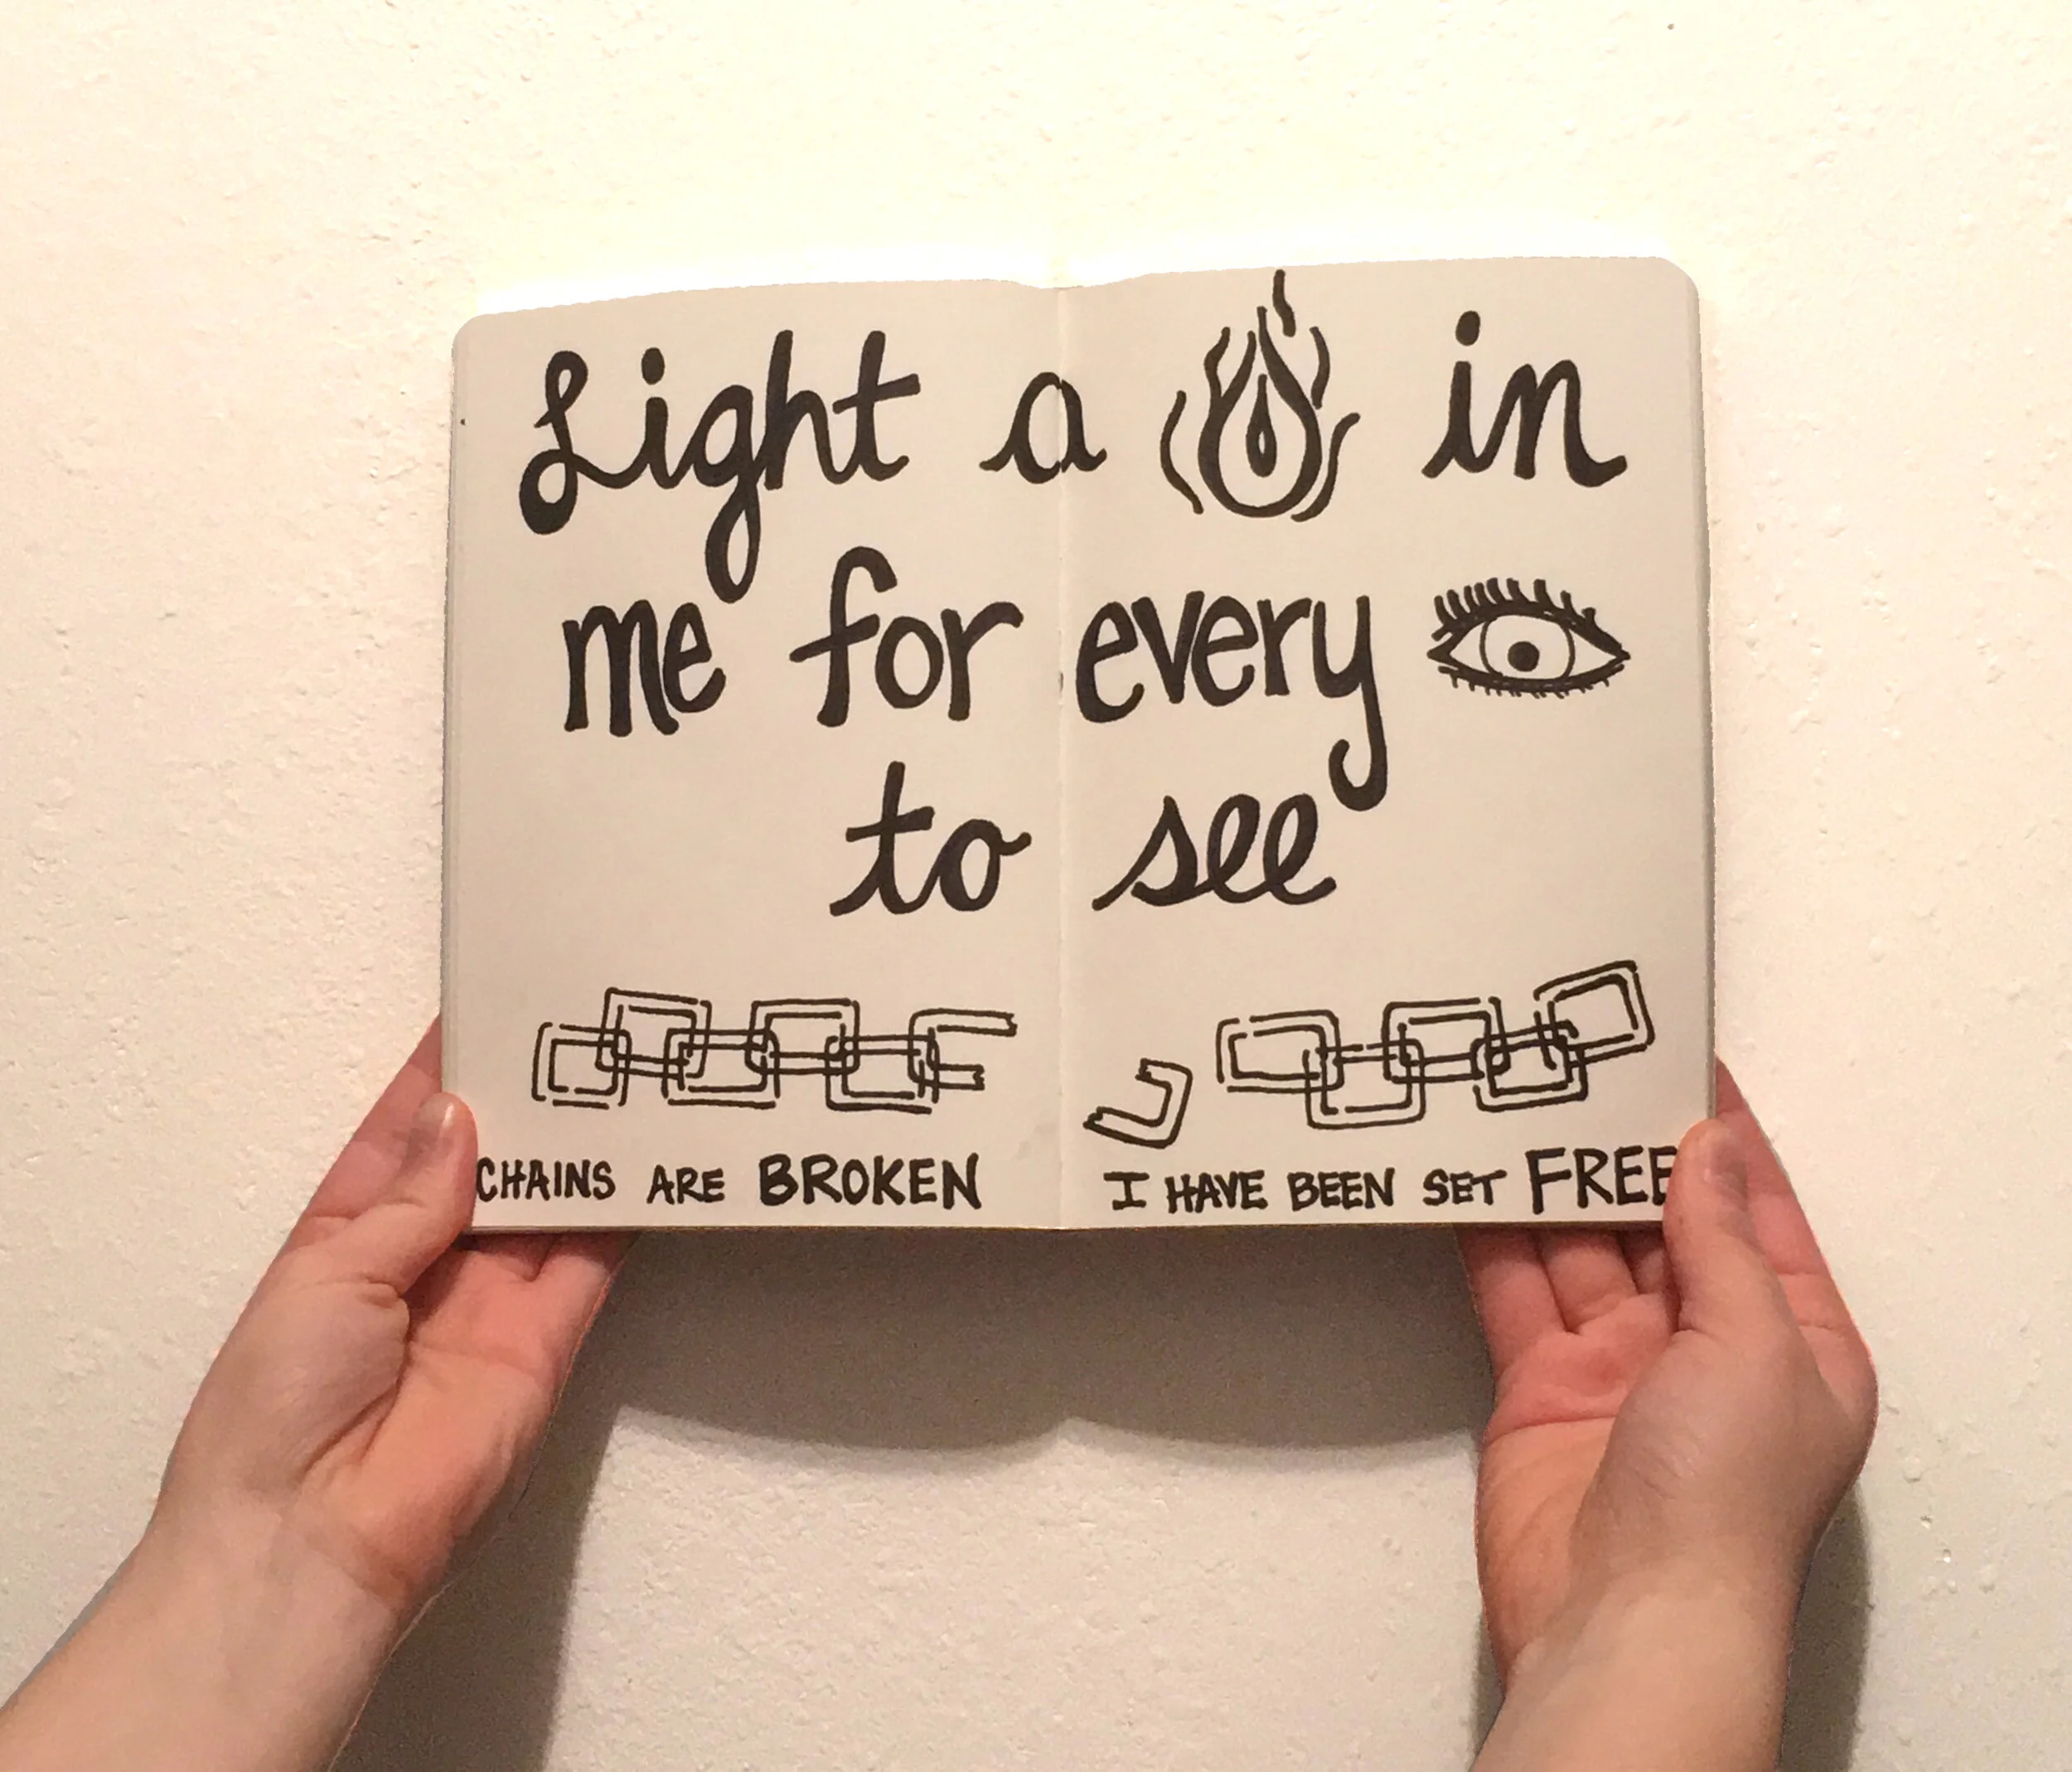 Light a in
me for every
to see
CHAINS ARE BROKEN I HAVE BEEN SET FREE